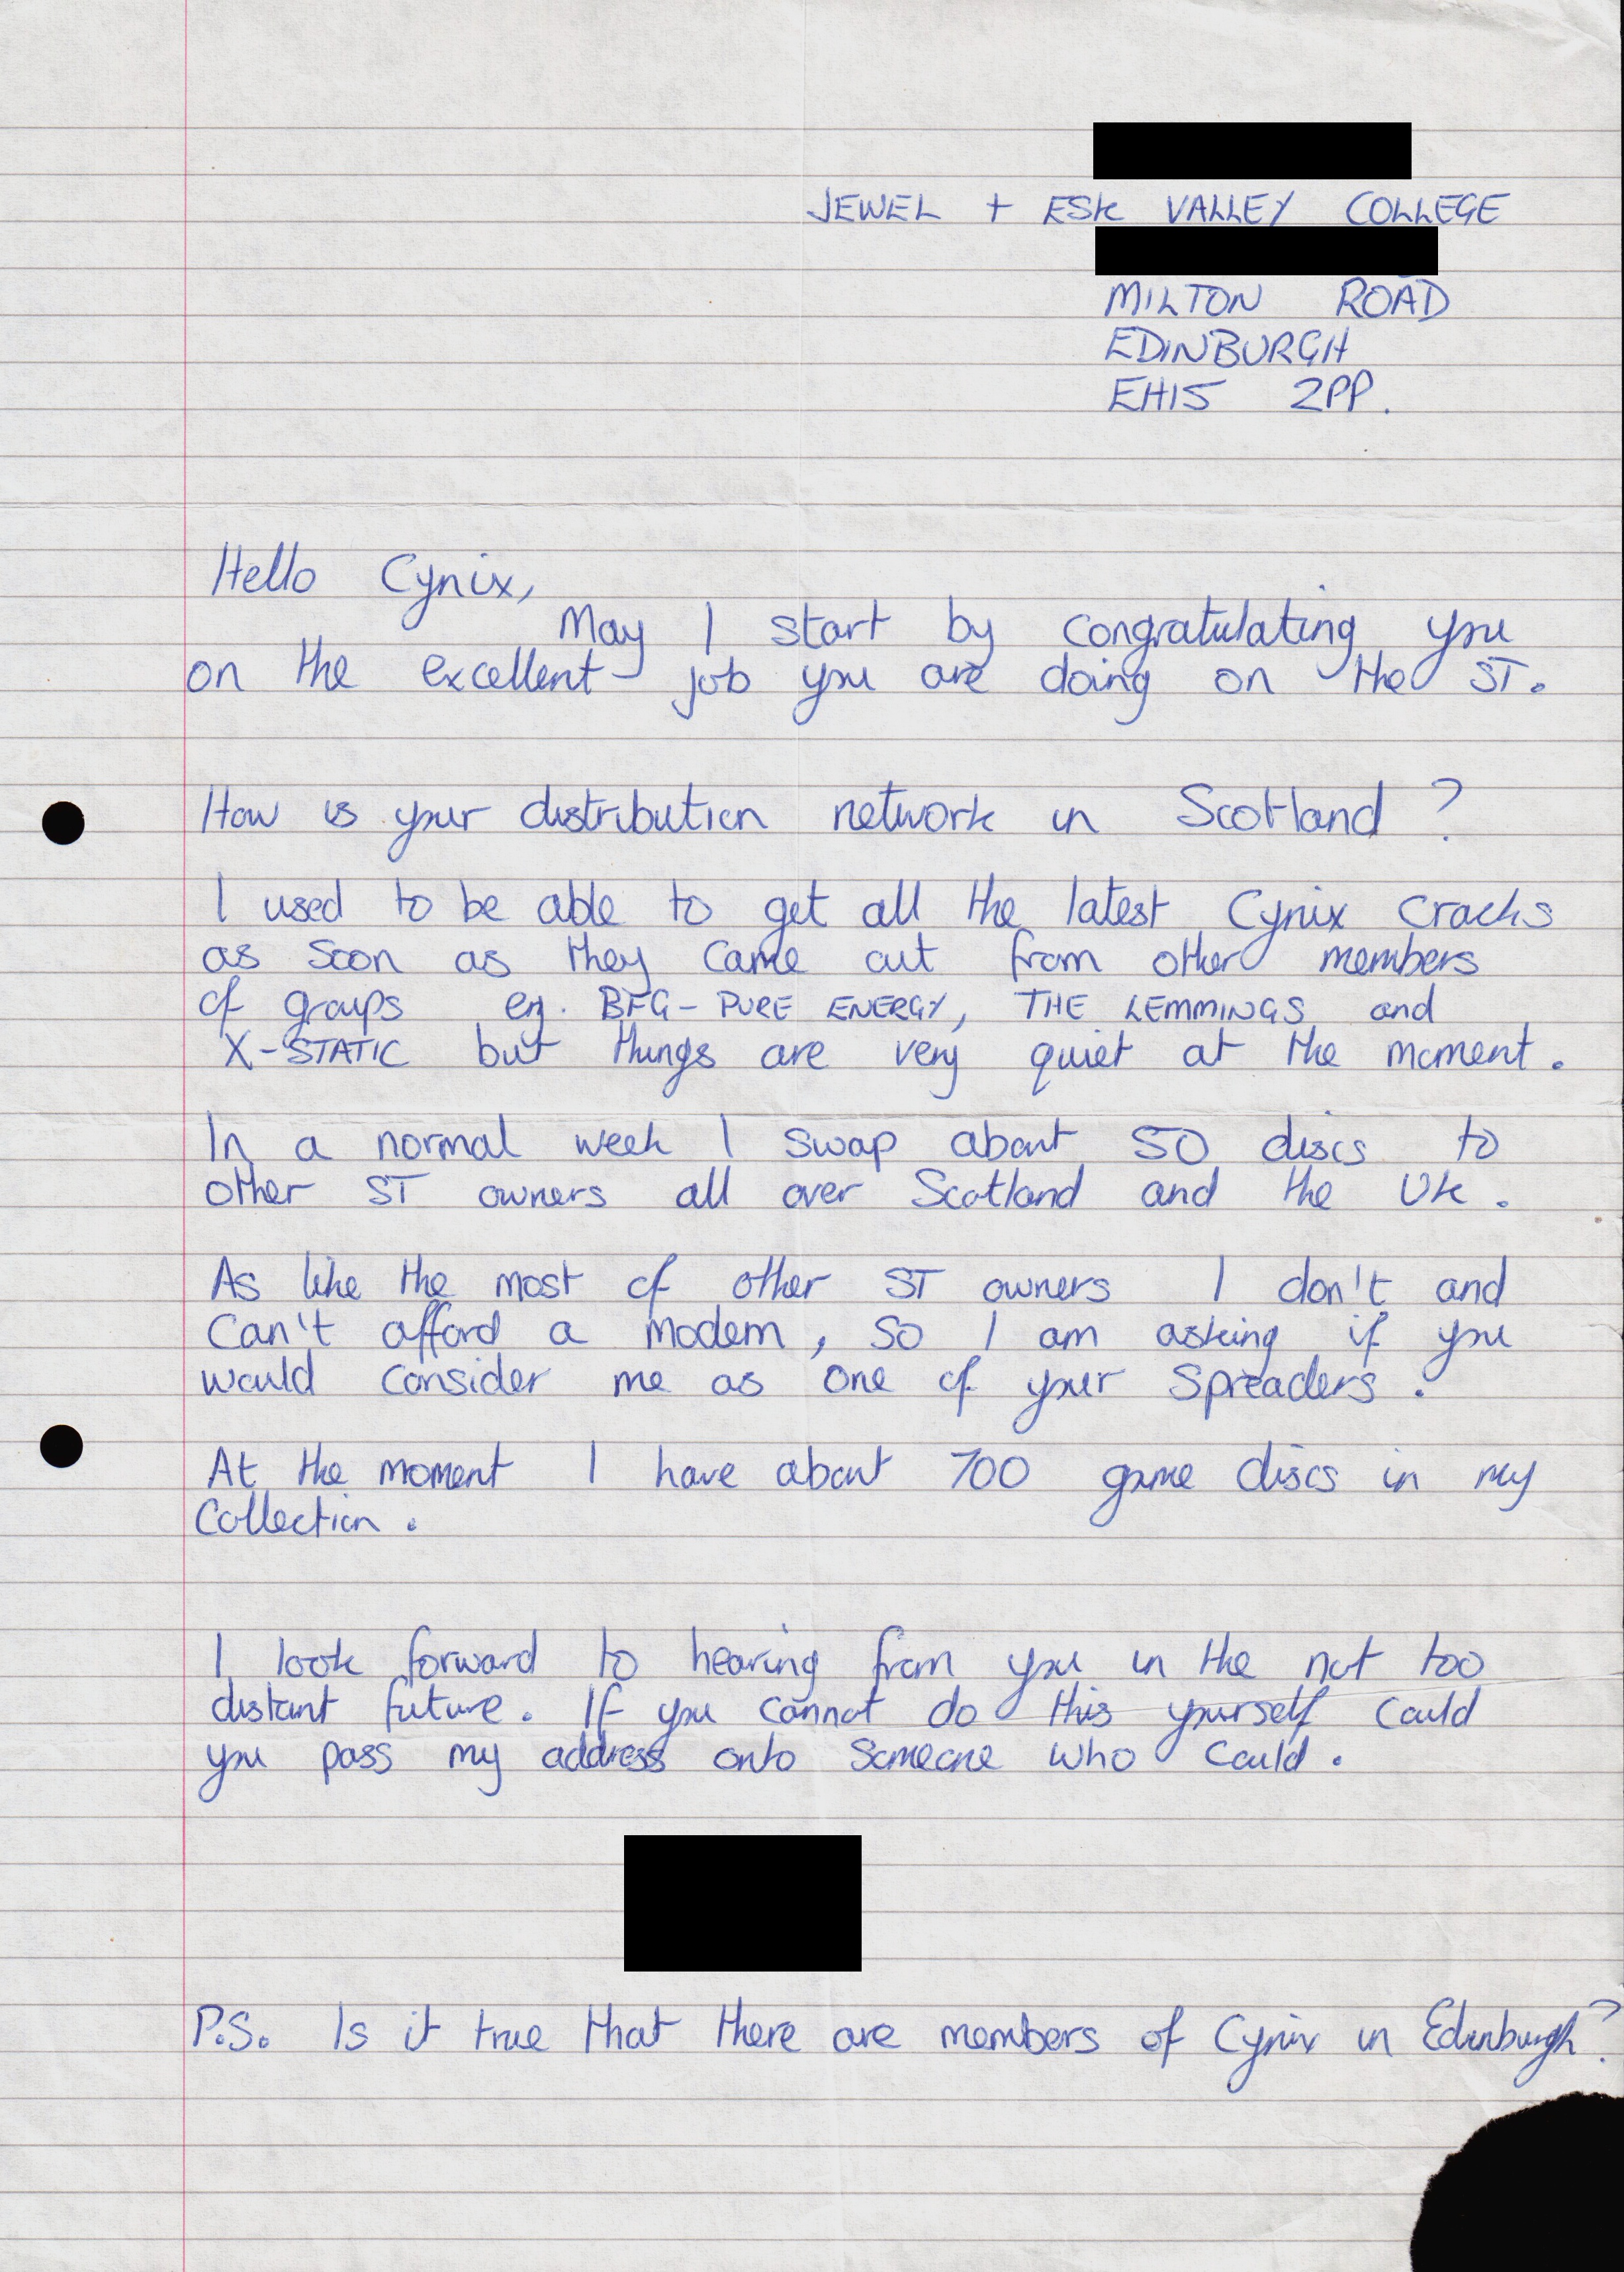 JEWEL + ESK VALLEY COLLEGE
MILTON ROAD
EDINBURGH
EH15 2PP.
Hello Cynix,
May I start by congratulating you
on the excellent job you are doing on the ST.
How is your distribution network in Scotland ?
I used to be able to get all the latest Cynix cracks
as soon as they came out from other members
of groups eg. BFG - PURE ENERGY, THE LEMMINGS and
X-STATIC but things are very quiet at the moment.
In a normal week I swap about 50 discs to
other ST owners all over Scotland and the UK.
As like the most of other ST owners I don't and
Can't afford a modem, so I am asking if you
would consider me as one of your Spreaders.
At the moment I have about 700 game discs in my
Collection.
I look forward to hearing from you in the not too
distant future. If you cannot do this yourself could
you pass my address onto someone who could.
P.S. Is it true that there are members of Cynix in Edinburgh?